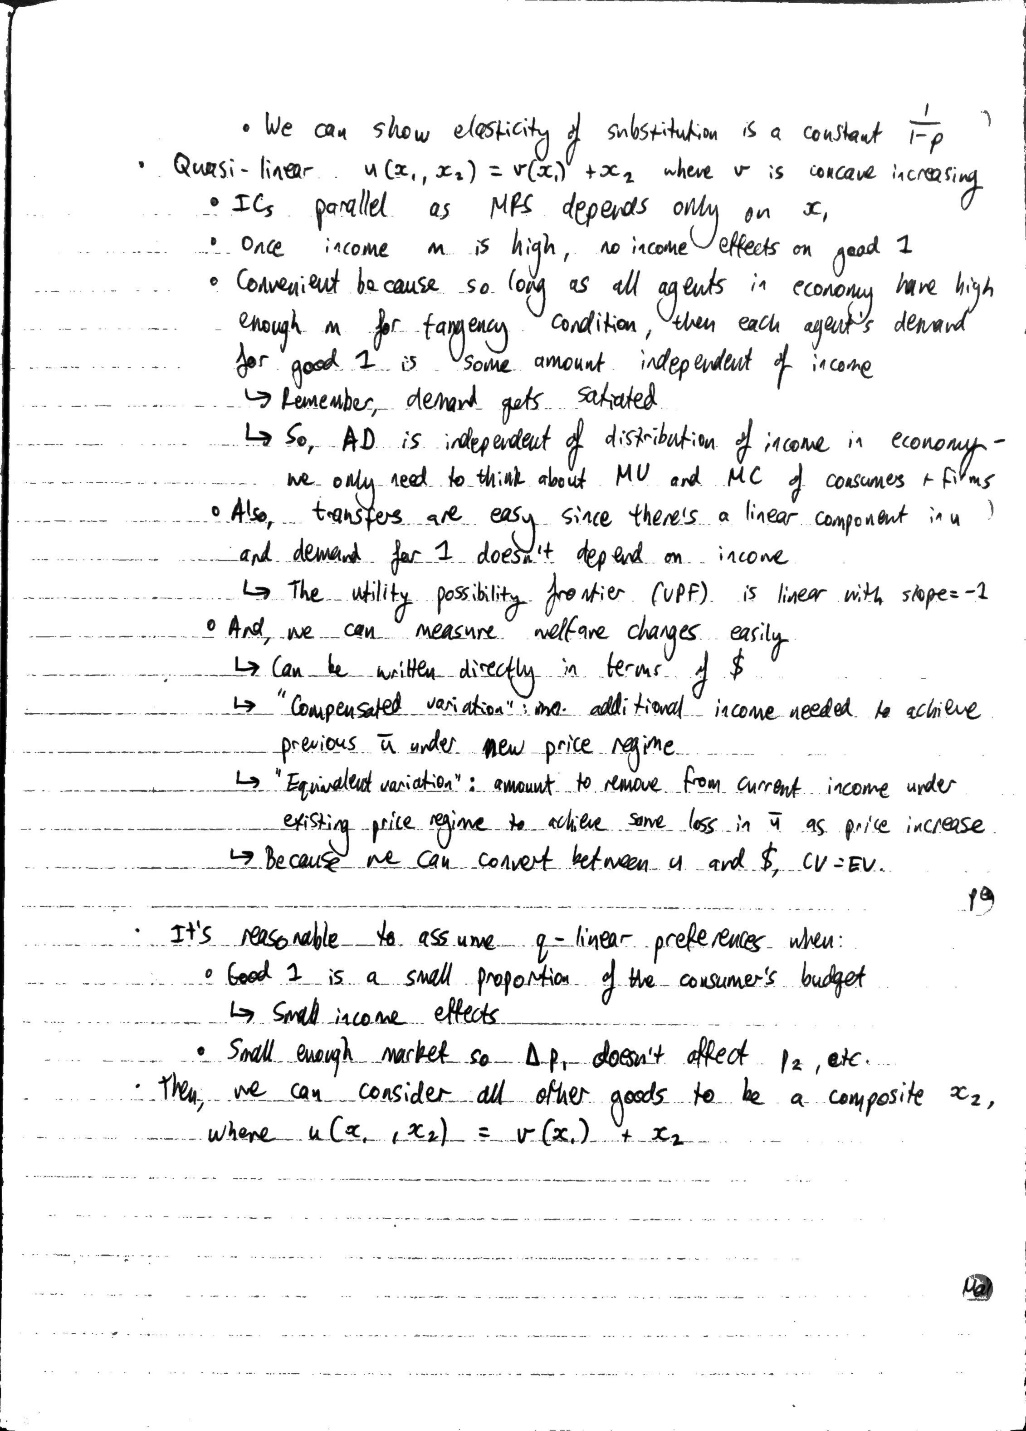 • We can show elasticity of substitution is a constant 1/(1-ρ)
• Quasi-linear u(x₁, x₂) = v(x₁) + x₂ where v is concave increasing
• ICs parallel as MRS depends only on x₁
• Once income m is high, no income effects on good 1
• Convenient because so long as all agents in economy have high
enough m for tangency condition, then each agent's demand
for good 1 is some amount independent of income
↳ Remember, demand gets satiated
↳ So, AD is independent of distribution of income in economy -
we only need to think about MU and MC of consumes + firms
• Also, transfers are easy since there's a linear component in u
and demand for 1 doesn't depend on income
↳ The utility possibility frontier (UPF) is linear with slope = -1
• And, we can measure welfare changes easily
↳ Can be written directly in terms of $
↳ "Compensated variation": additional income needed to achieve
previous ū under new price regime
↳ "Equivalent variation": amount to remove from current income under
existing price regime to achieve same loss in ū as price increase
↳ Because we can convert between u and $, CV = EV.
• It's reasonable to assume q-linear preferences when:
• Good 1 is a small proportion of the consumer's budget
↳ Small income effects
• Small enough market so Δp₁ doesn't affect p₂, etc.
• Then, we can consider all other goods to be a composite x₂,
where u(x₁, x₂) = v(x₁) + x₂